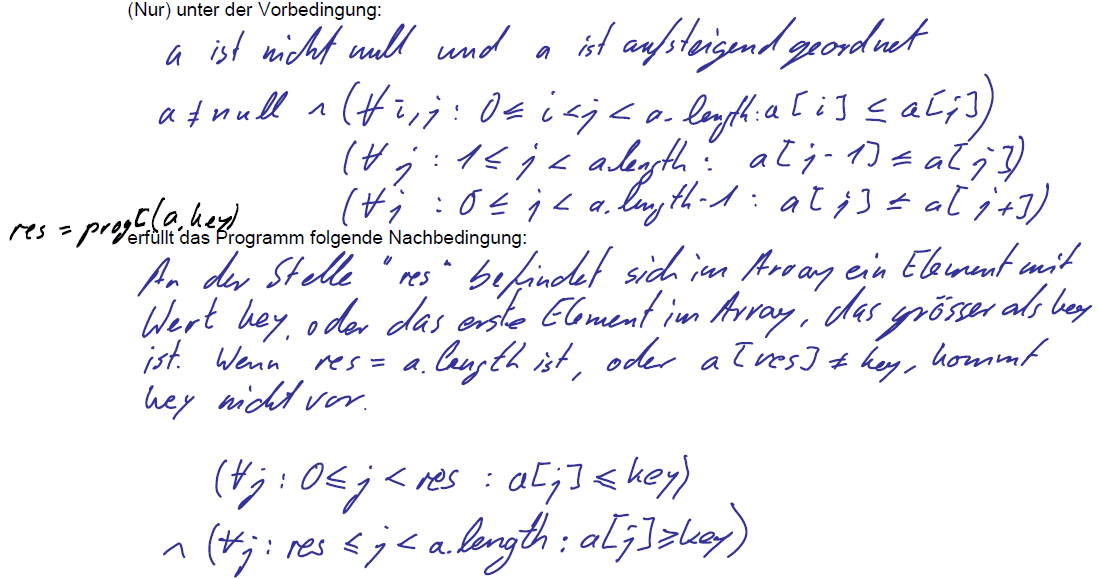 (Nur) unter der Vorbedingung:
a ist nicht null und a ist aufsteigend geordnet
a ≠ null ∧ (∀ i,j : 0 ≤ i < j < a.length : a[i] ≤ a[j])
(∀ j : 1 ≤ j < a.length : a[j-1] ≤ a[j])
(∀ j : 0 ≤ j < a.length-1 : a[j] ≤ a[j+])
res = progC(a.key)
erfüllt das Programm folgende Nachbedingung:
An der Stelle "res" befindet sich im Array ein Element mit
Wert key, oder das erste Element im Array, das grösser als key
ist. Wenn res = a.length ist, oder a[res] ≠ key, kommt
key nicht vor.
(∀j : 0 ≤ j < res : a[j] ≤ key)
∧ (∀j : res ≤ j < a.length : a[j] ≥ key)